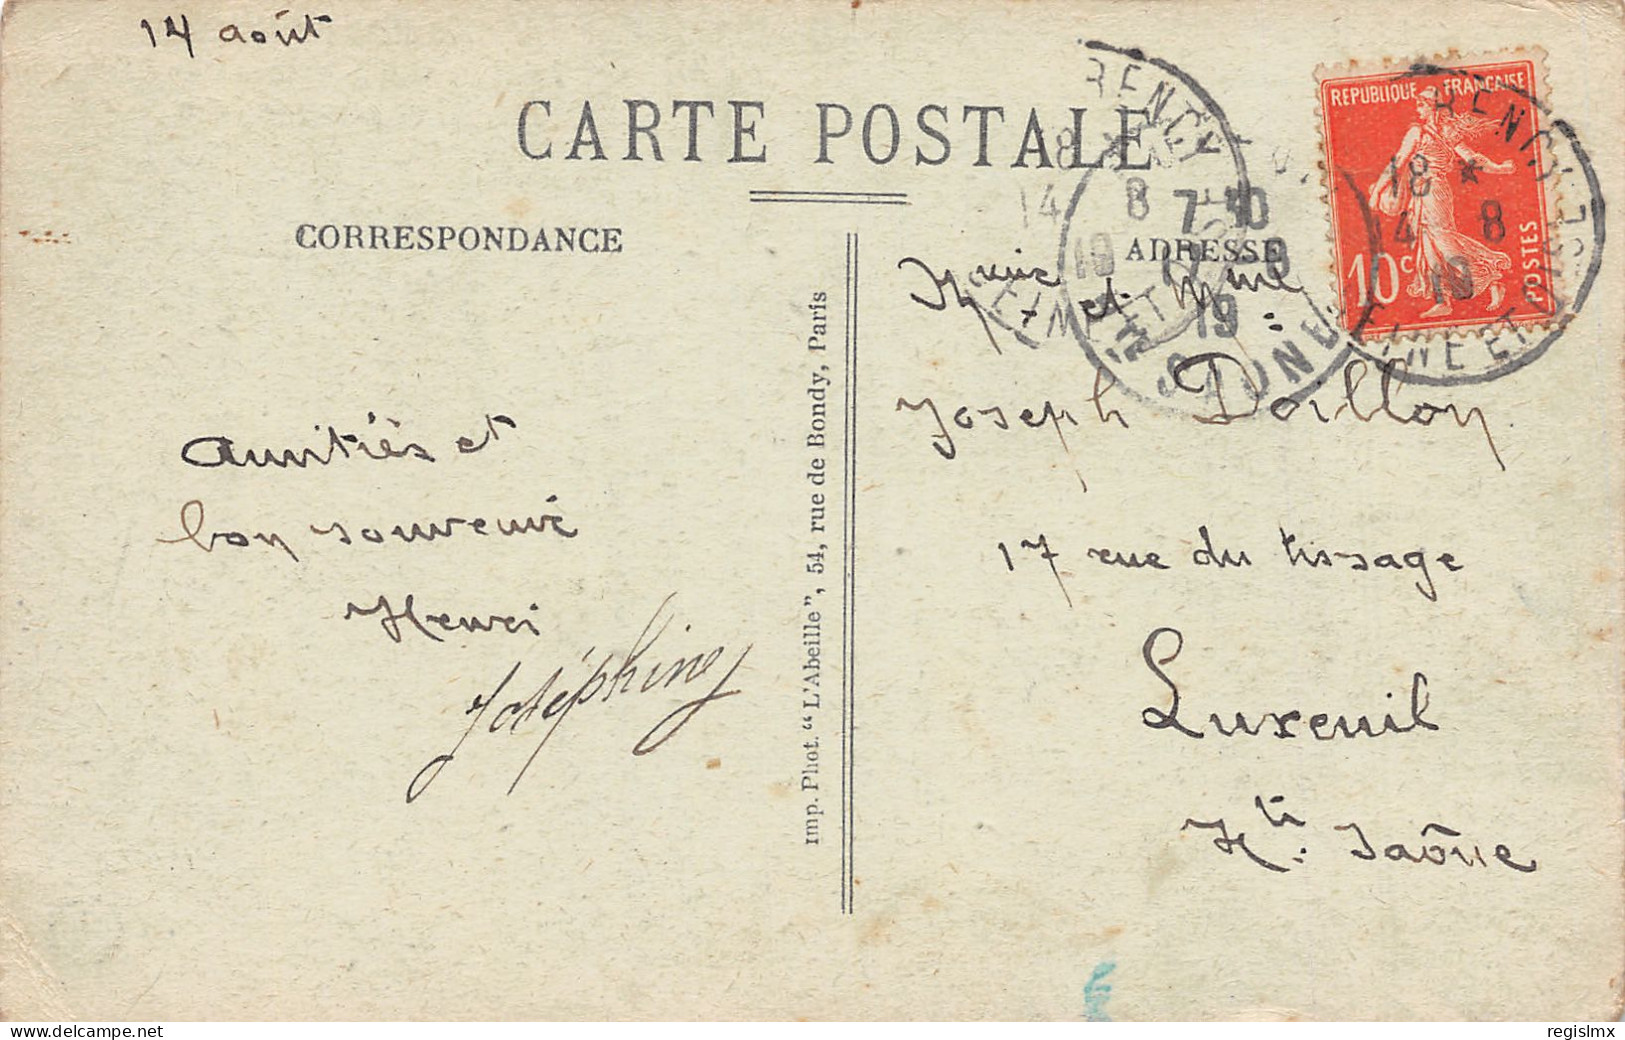 14 août
CARTE POSTALE
CORRESPONDANCE
ADRESSE
Amitiés et
bon souvenir
Henri
Joséphine
Imp. Phot. “L'Abeille”, 54, rue de Bondy, Paris
et Mme
Joseph Doillon
17 rue du tissage
Luxeuil
Hte Saône
REPUBLIQUE FRANÇAISE
10c
POSTES
18 *
14 8
19
18 *
14 8
19
7 30
17 8
19
delcampe.net
regislmx